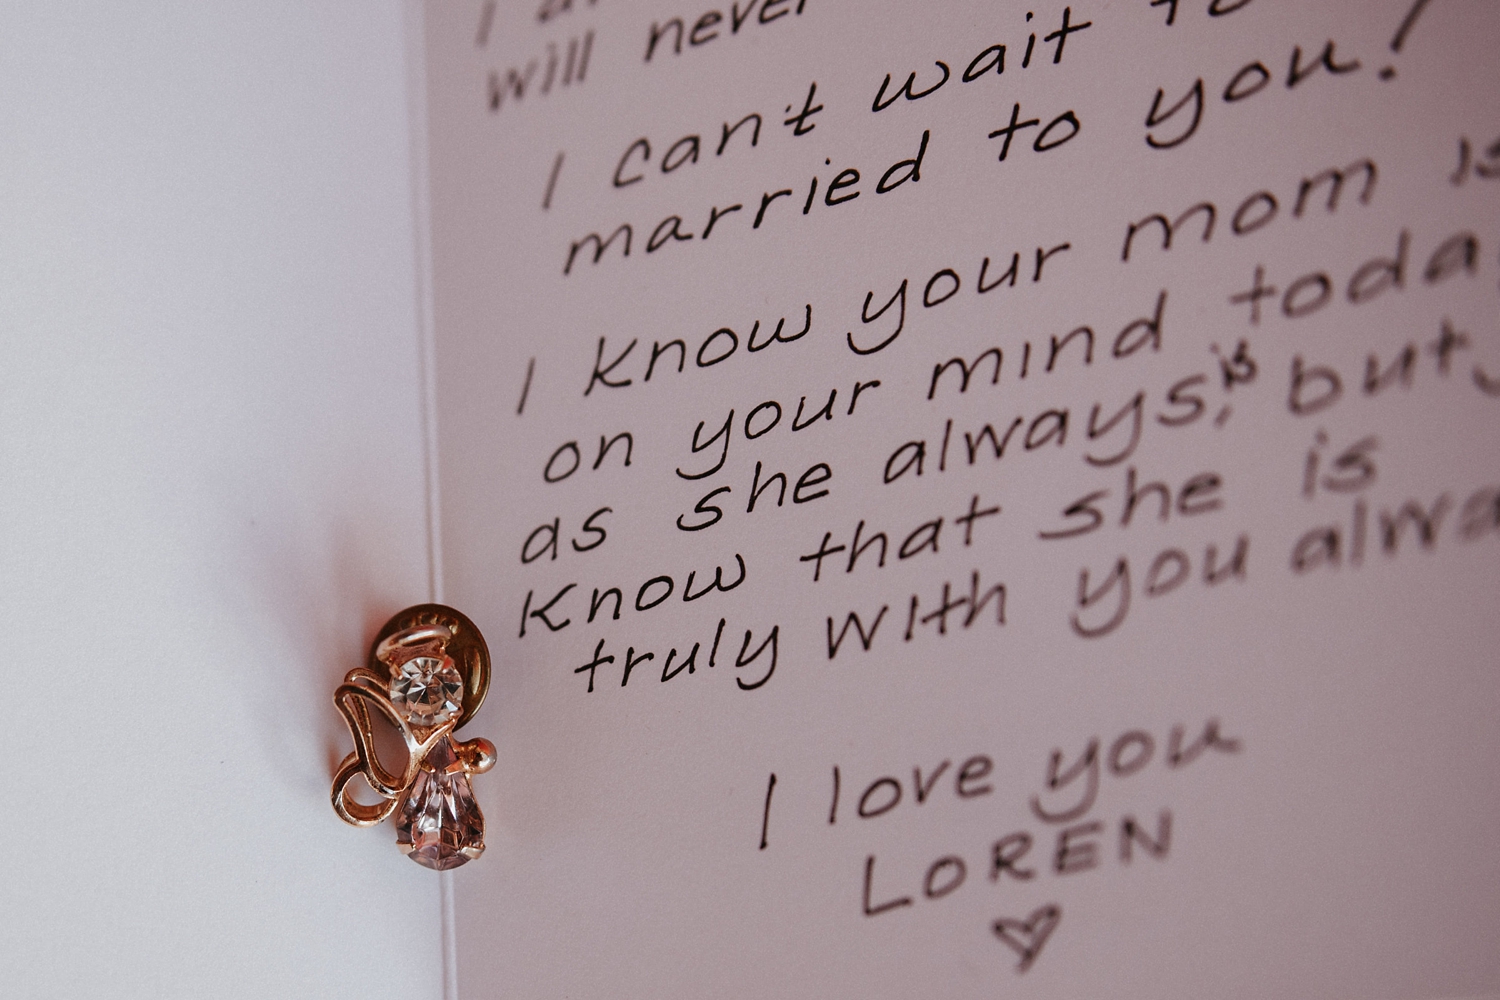 I
will never
I can't wait to
married to you!
I know your mom is
on your mind today
as she always is, but
Know that she is
truly with you
I love you
LOREN